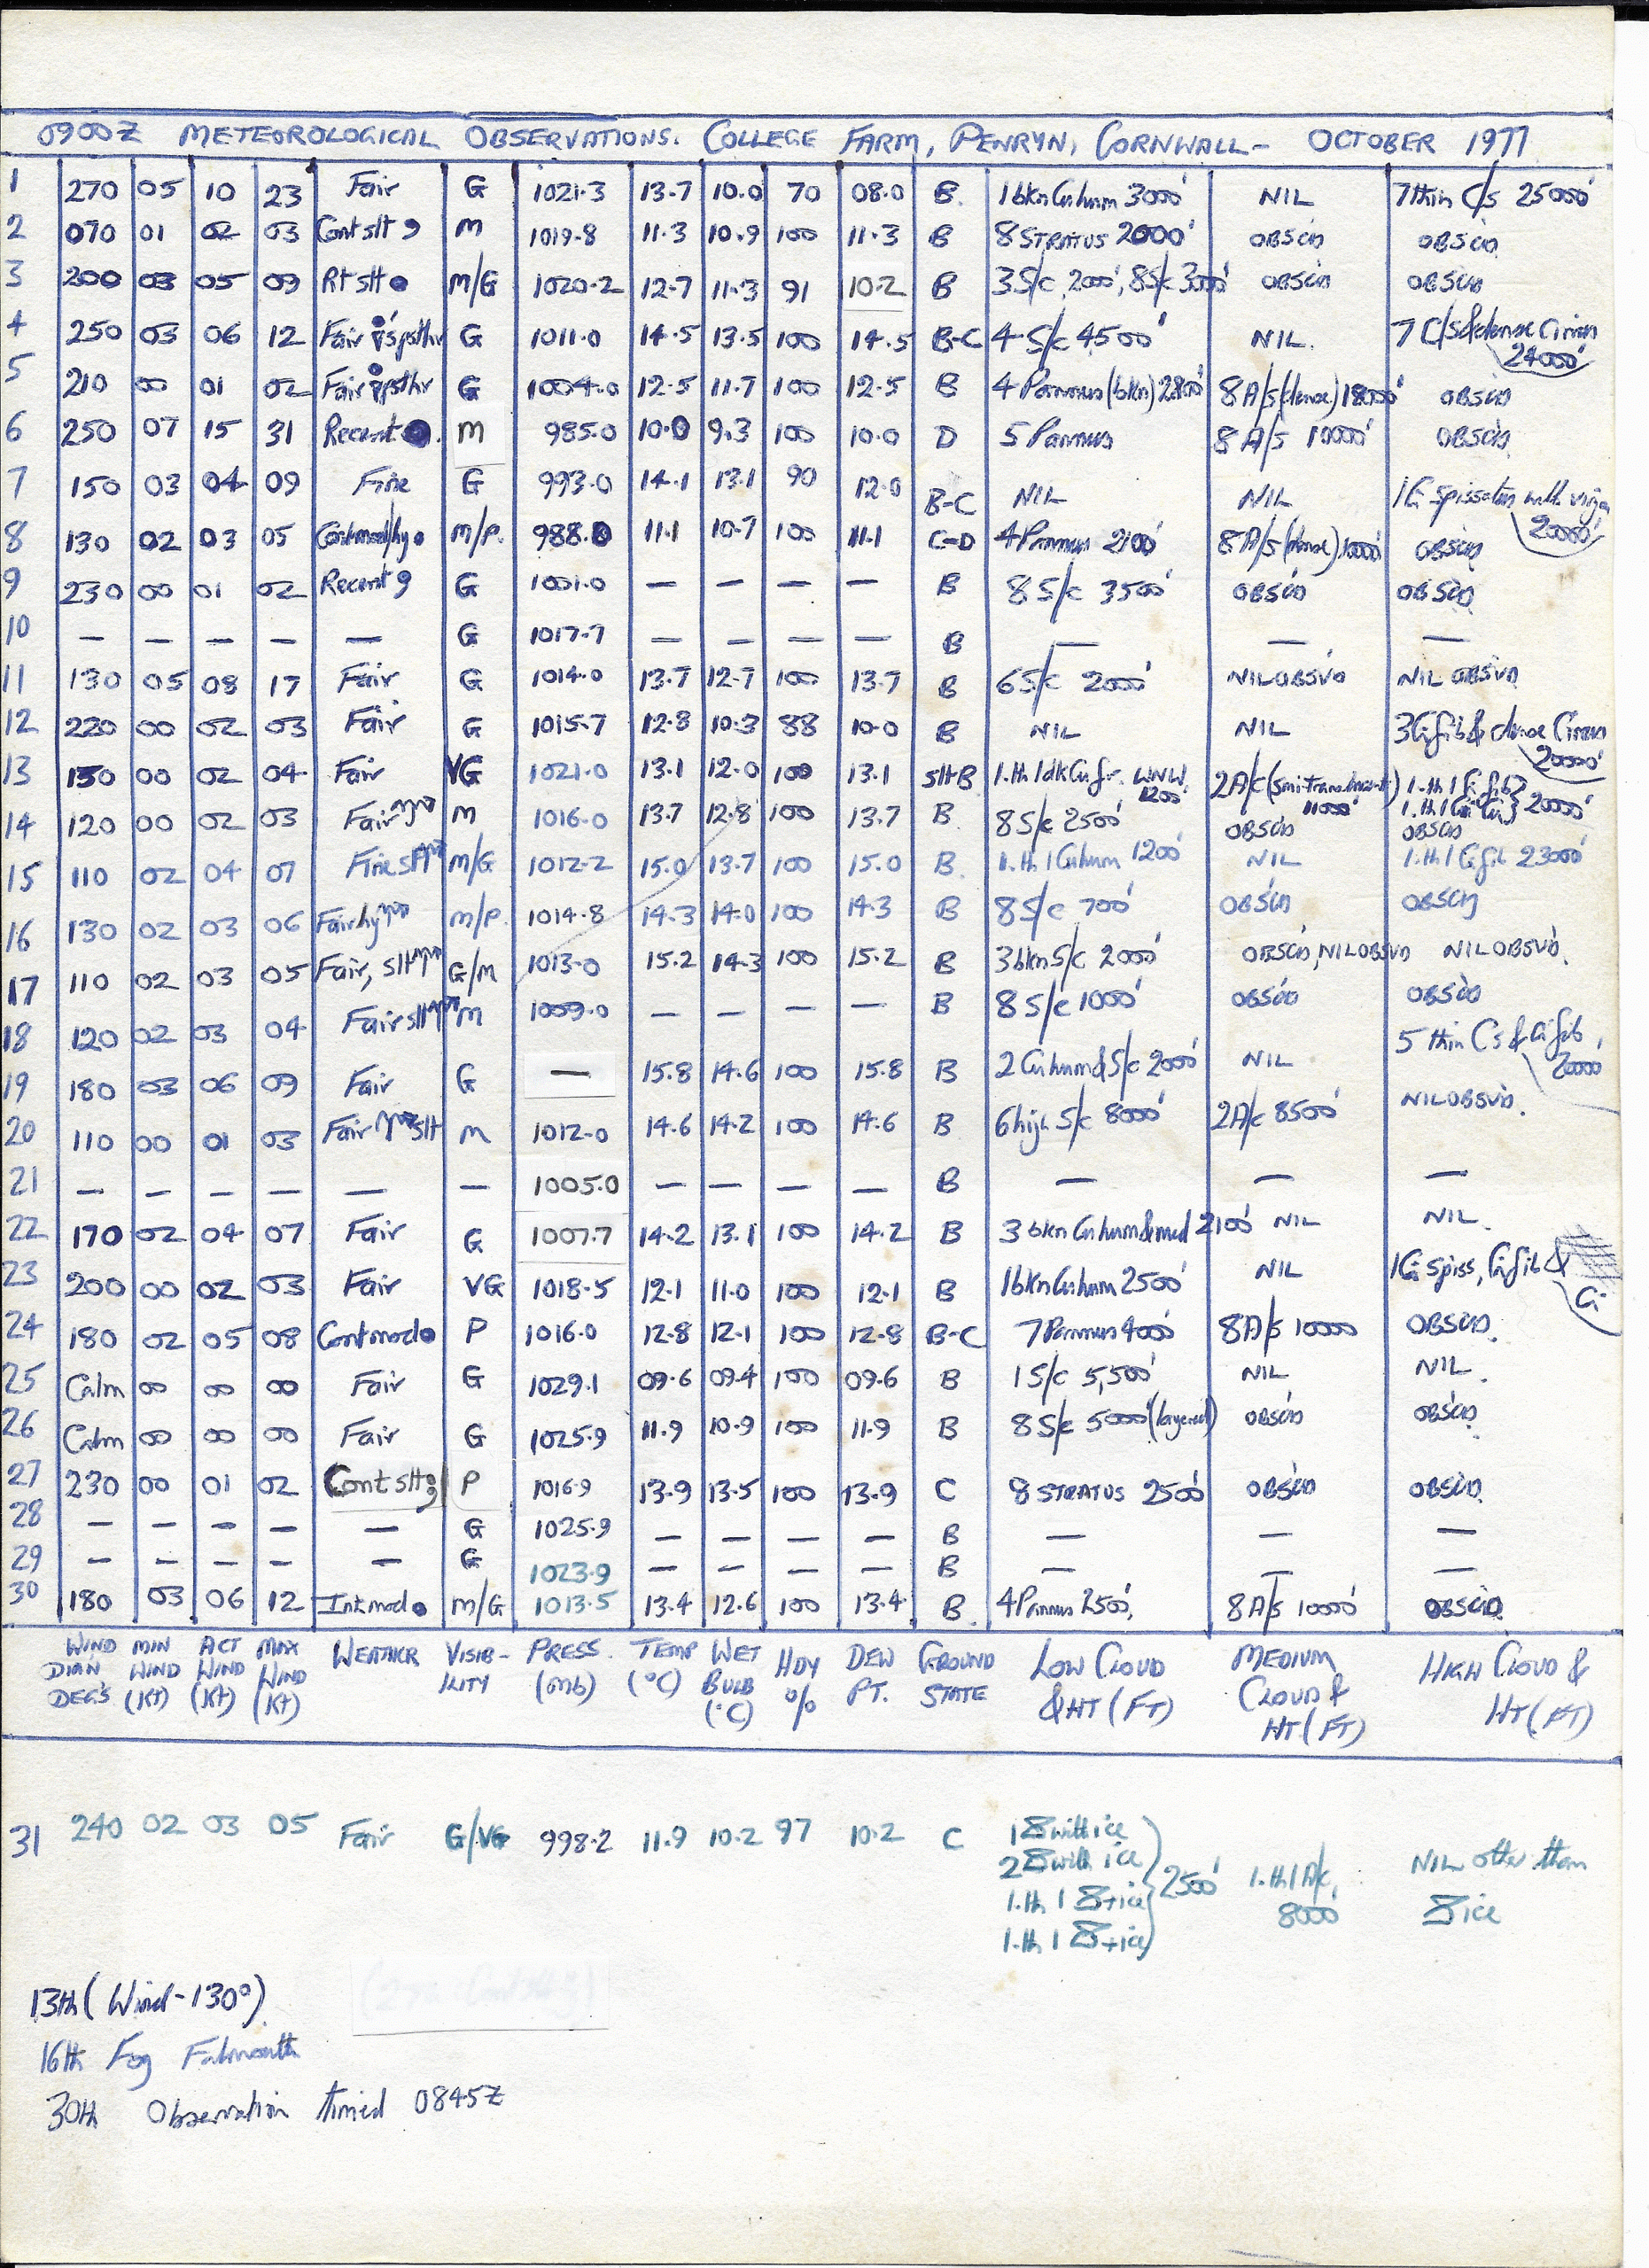 0900Z METEOROLOGICAL OBSERVATIONS. COLLEGE FARM, PENRYN, CORNWALL - OCTOBER 1977
1 270 05 10 23 Fair G 1021.3 13.7 10.0 70 08.0 B. 1bkn Cu hum 3000' NIL 7thin C/s 25000'
2 070 01 02 03 Cont slt 9 M 1019.8 11.3 10.9 100 11.3 B 8 STRATUS 2000' OBSCD OBSCD
3 200 03 05 09 Rt slt ● M/G 1020.2 12.7 11.3 91 10.2 B 3S/c 2000', 8S/c 3000' OBSCD OBSCD
4 250 03 06 12 Fair G 1011.0 14.5 13.5 100 14.5 B-C 4 S/c 4500' NIL. 7 C/s & dense Cirrus 24000'
5 210 00 01 02 Fair G 1004.0 12.5 11.7 100 12.5 B 4 Pannus (bkn) 2800' 8 A/s (dense) 18000' OBSCD
6 250 07 15 31 Recent ●. M 985.0 10.0 9.3 100 10.0 D 5 Pannus 8 A/s 10000' OBSCD
7 150 03 04 09 Fine G 993.0 14.1 13.1 90 12.0 B-C NIL NIL 1Ci spissatus with virga 20000'
8 130 02 03 05 Cont mod/hy ● M/P. 988.0 11.1 10.7 100 11.1 C-D 4 Pannus 2100' 8 A/s (dense) 10000' OBSCD
9 230 00 01 02 Recent 9 G 1001.0 — — — — B 8 S/c 3500' OBSCD OBSCD
10 — — — — — G 1017.7 — — — — B — — —
11 130 05 08 17 Fair G 1014.0 13.7 12.7 100 13.7 B 6S/c 2000' NIL OBSVD NIL OBSVD
12 220 00 02 03 Fair G 1015.7 12.8 10.3 88 10.0 B NIL NIL 3Ci fib & dense Cirrus 20000'
13 130 00 02 04 Fair VG 1021.0 13.1 12.0 100 13.1 slt B 1.th 1 dk Cu fr. WNW. 1200' 2A/c (semi-translucent) 11000' 1.th 1 Ci fib } 20000'
14 120 00 02 03 Fair M 1016.0 13.7 12.8 100 13.7 B. 8 S/c 2500' OBSCD OBSCD
15 110 02 04 07 Fine slt M/G 1012.2 15.0 13.7 100 15.0 B. 1.th 1 Cu hum 1200' NIL 1.th 1 Ci fib 23000'
16 130 02 03 06 Fair hy M/P. 1014.8 14.3 14.0 100 14.3 B 8 S/c 700' OBSCD OBSCD
17 110 02 03 05 Fair, slt G/M 1013.0 15.2 14.3 100 15.2 B 3bkn S/c 2000' OBSCD, NIL OBSVD NIL OBSVD.
18 120 02 03 04 Fair slt M 1009.0 — — — — B 8 S/c 1000' OBSCD OBSCD
19 180 03 06 09 Fair G — 15.8 14.6 100 15.8 B 2 Cu hum & S/c 2000' NIL 5 thin Cs & Ci fib, 20000'
20 110 00 01 03 Fair slt M 1012.0 14.6 14.2 100 14.6 B 6 high S/c 8000' 2A/c 8500' NIL OBSVD.
21 — — — — — — 1005.0 — — — — B — — —
22 170 02 04 07 Fair G 1007.7 14.2 13.1 100 14.2 B 3 bkn Cu hum & med 2100' NIL NIL.
23 200 00 02 03 Fair VG 1018.5 12.1 11.0 100 12.1 B 1bkn Cu hum 2500' NIL 1Ci spiss, Ci fib & Ci
24 180 02 05 08 Cont mod ● P 1016.0 12.8 12.1 100 12.8 B-C 7 Pannus 4000' 8A/s 10000 OBSCD.
25 Calm 00 00 00 Fair G 1029.1 09.6 09.4 100 09.6 B 1 S/c 5,500' NIL NIL.
26 Calm 00 00 00 Fair G 1025.9 11.9 10.9 100 11.9 B 8 S/c 5000' (layered) OBSCD OBSCD
27 230 00 01 02 Cont slt 9 P 1016.9 13.9 13.5 100 13.9 C 8 STRATUS 2500' OBSCD OBSCD
28 — — — — — G 1025.9 — — — — B — — —
29 — — — — — G 1023.9 — — — — B — — —
30 180 03 06 12 Int mod ● M/G 1013.5 13.4 12.6 100 13.4 B. 4 Pannus 2500', 8 A/s 10000' OBSCD
WIND DIR'N DEG'S MIN WIND (Kt) ACT WIND (Kt) MAX WIND (Kt) WEATHER VISIB-ILITY PRESS. (mb) TEMP (°C) WET BULB (°C) HDY % DEW PT. GROUND STATE LOW CLOUD & HT (FT) MEDIUM CLOUD & HT (FT) HIGH CLOUD & HT (FT)
31 240 02 03 05 Fair G/VG 998.2 11.9 10.2 97 10.2 C 1 with ice 2500' 1.th 1 A/c, 8000' NIL other than
2 with ice ice
1.th 1 + ice
1.th 1 + ice
13th (Wind - 130°)
16th Fog Falmouth
30th Observation timed 0845Z